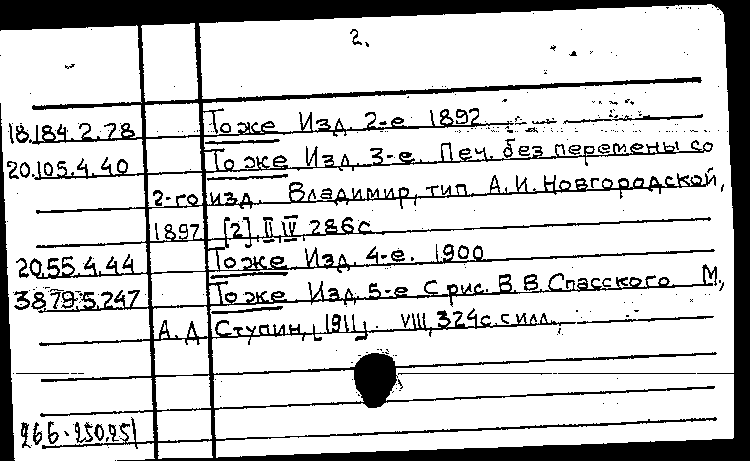 2.
18.184.2.78 То же Изд. 2-е 1892
20.105.4.40 То же Изд. 3-е. Печ. без перемены со
2-го изд. Владимир, тип. А.И. Новгородской,
1897 [2], II, IV, 286с.
20.55.4.44 То же Изд. 4-е. 1900
38.79.5.247 То же Изд. 5-е С рис. В.В. Спасского М,
А.Д Ступин, [1911]. VIII, 324с. с илл.,
266.250.251